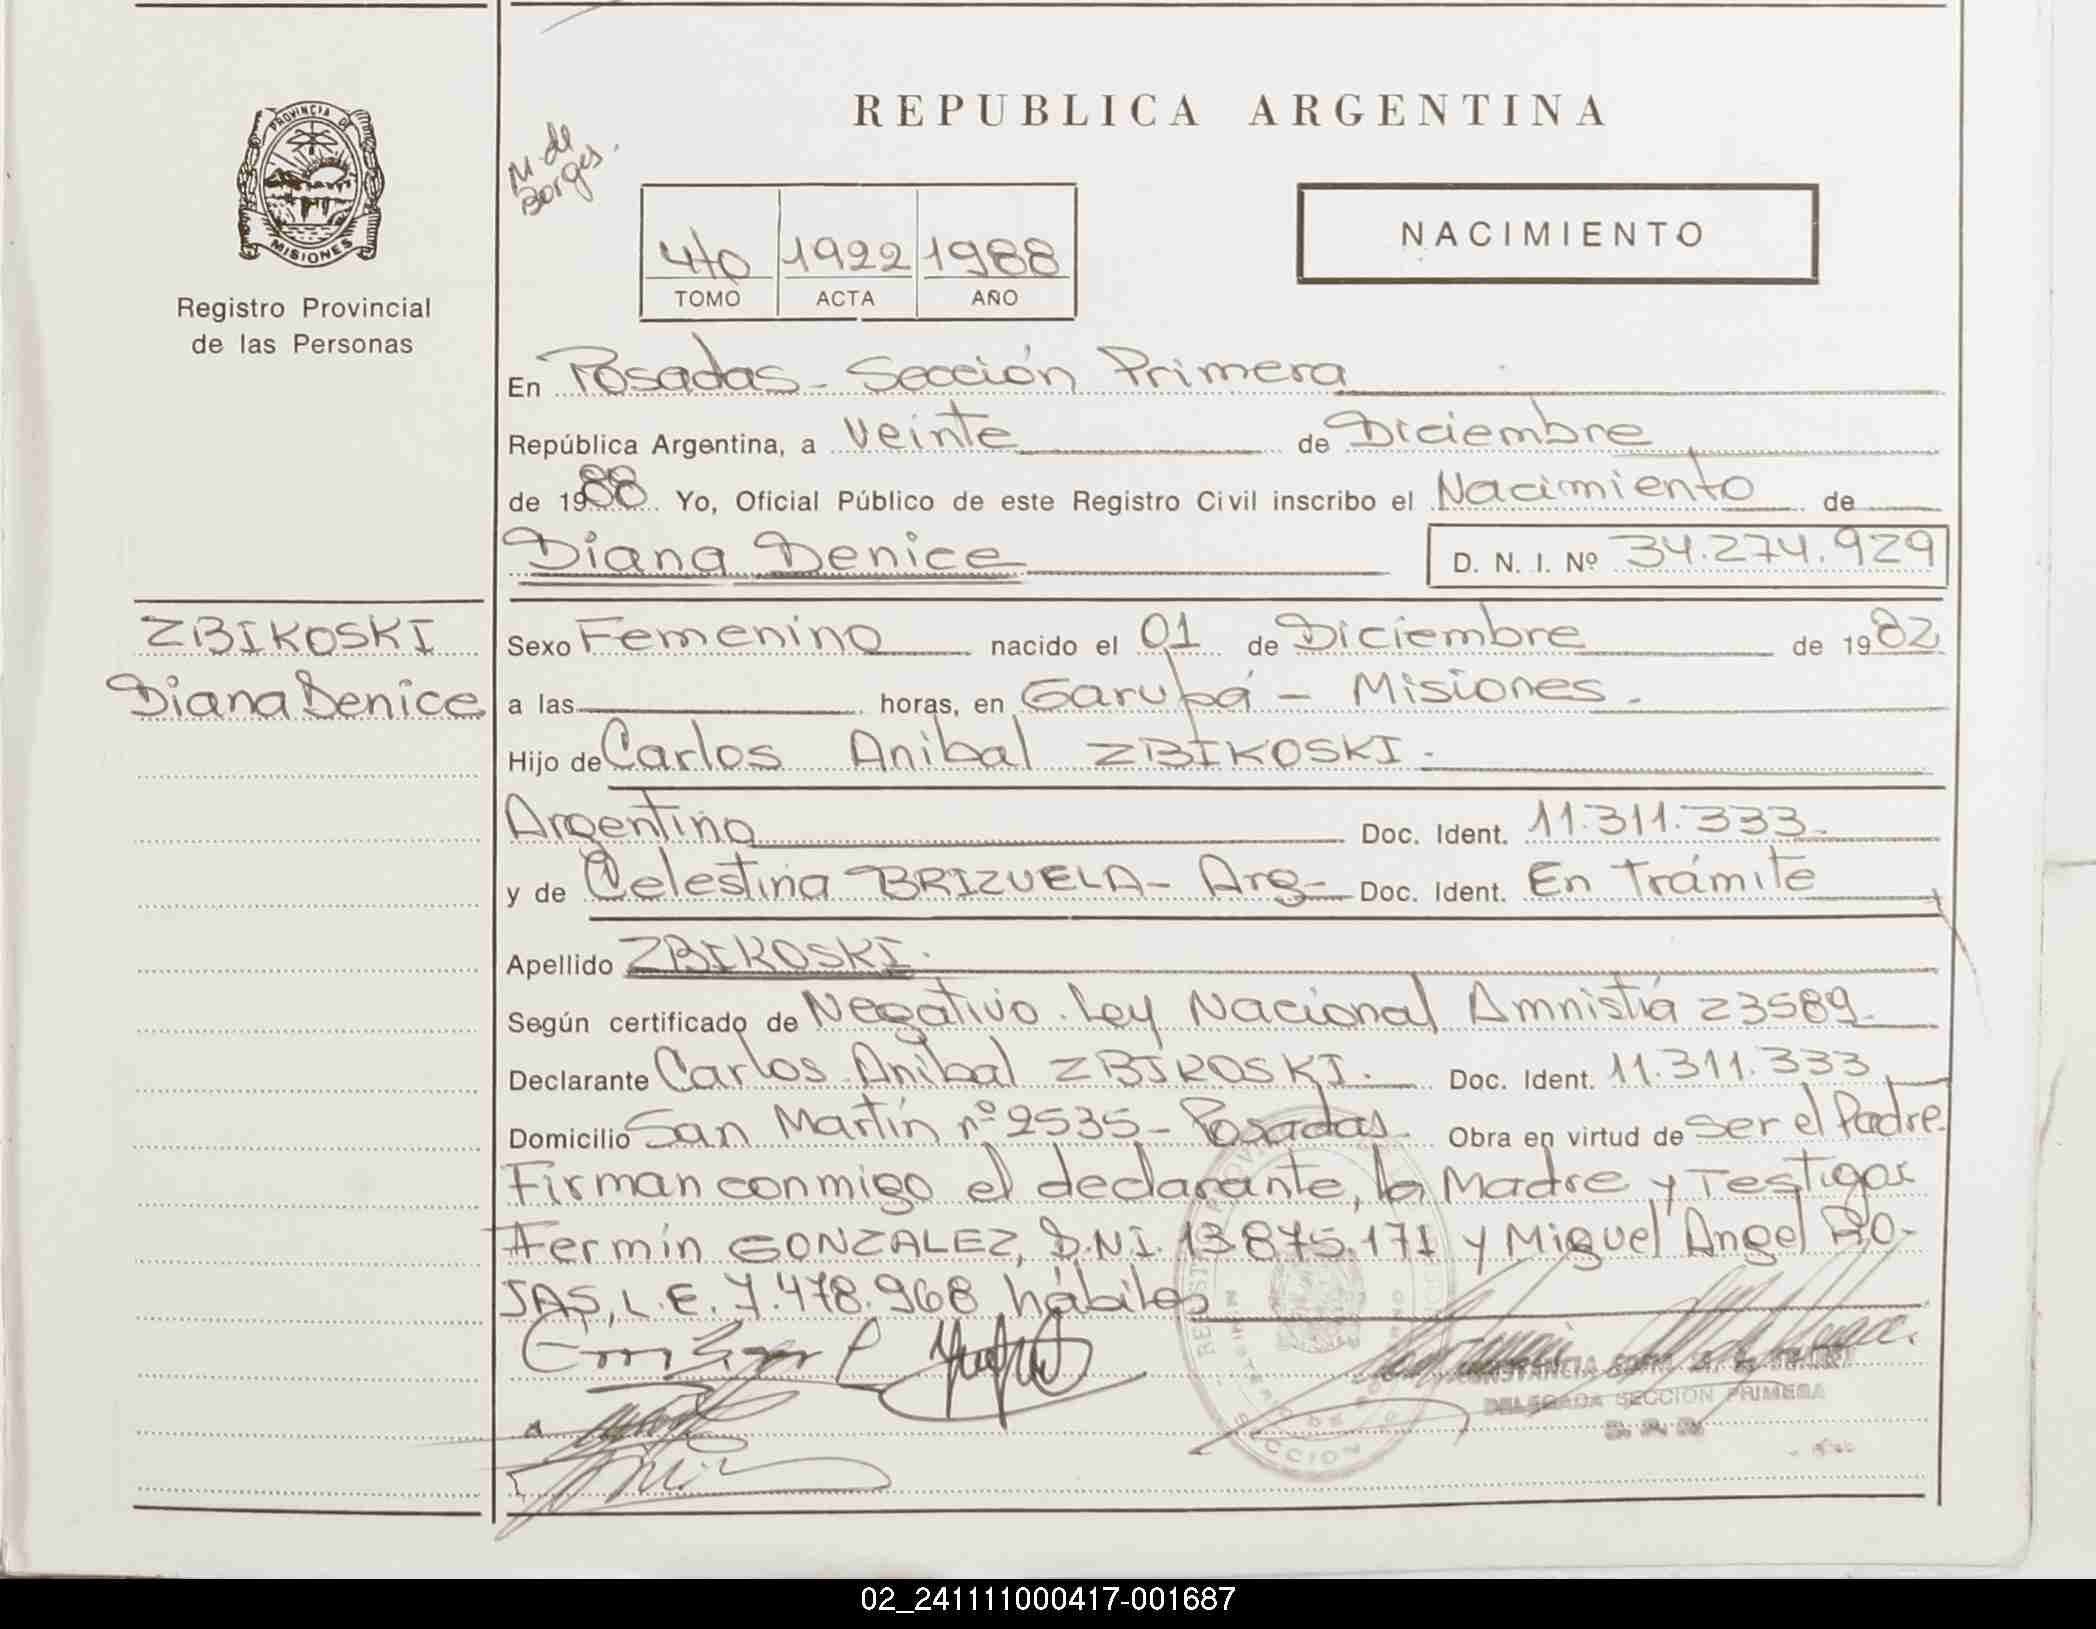 REPUBLICA ARGENTINA
PROVINCIA DE
MISIONES
Registro Provincial
de las Personas
M. de
Borges.
4to 1922 1988
TOMO ACTA AÑO
NACIMIENTO
En Posadas - Sección Primera
República Argentina, a Veinte de Diciembre
de 1988. Yo, Oficial Público de este Registro Civil inscribo el Nacimiento de
Diana Denice D. N. I. Nº 34.274.929
ZBIKOSKI
Diana Denice
Sexo Femenino nacido el 01 de Diciembre de 1982
a las horas, en Garupá - Misiones.
Hijo de Carlos Anibal ZBIKOSKI.
Argentino Doc. Ident. 11.311.333.
y de Celestina BRIZUELA - Arg- Doc. Ident. En Trámite
Apellido ZBIKOSKI.
Según certificado de Negativo. Ley Nacional Amnistía 23589.
Declarante Carlos Anibal ZBIKOSKI. Doc. Ident. 11.311.333
Domicilio San Martín nº 2535 - Posadas Obra en virtud de Ser el Padre.
Firman conmigo el declarante, la Madre y Testigos
Fermín GONZALEZ, D.N.I. 13.875.171 y Miguel Angel RO-
JAS, L.E. 7.478.968 hábiles
CONSTANCIA
DELEGADA SECCION PRIMERA
02_241111000417-001687